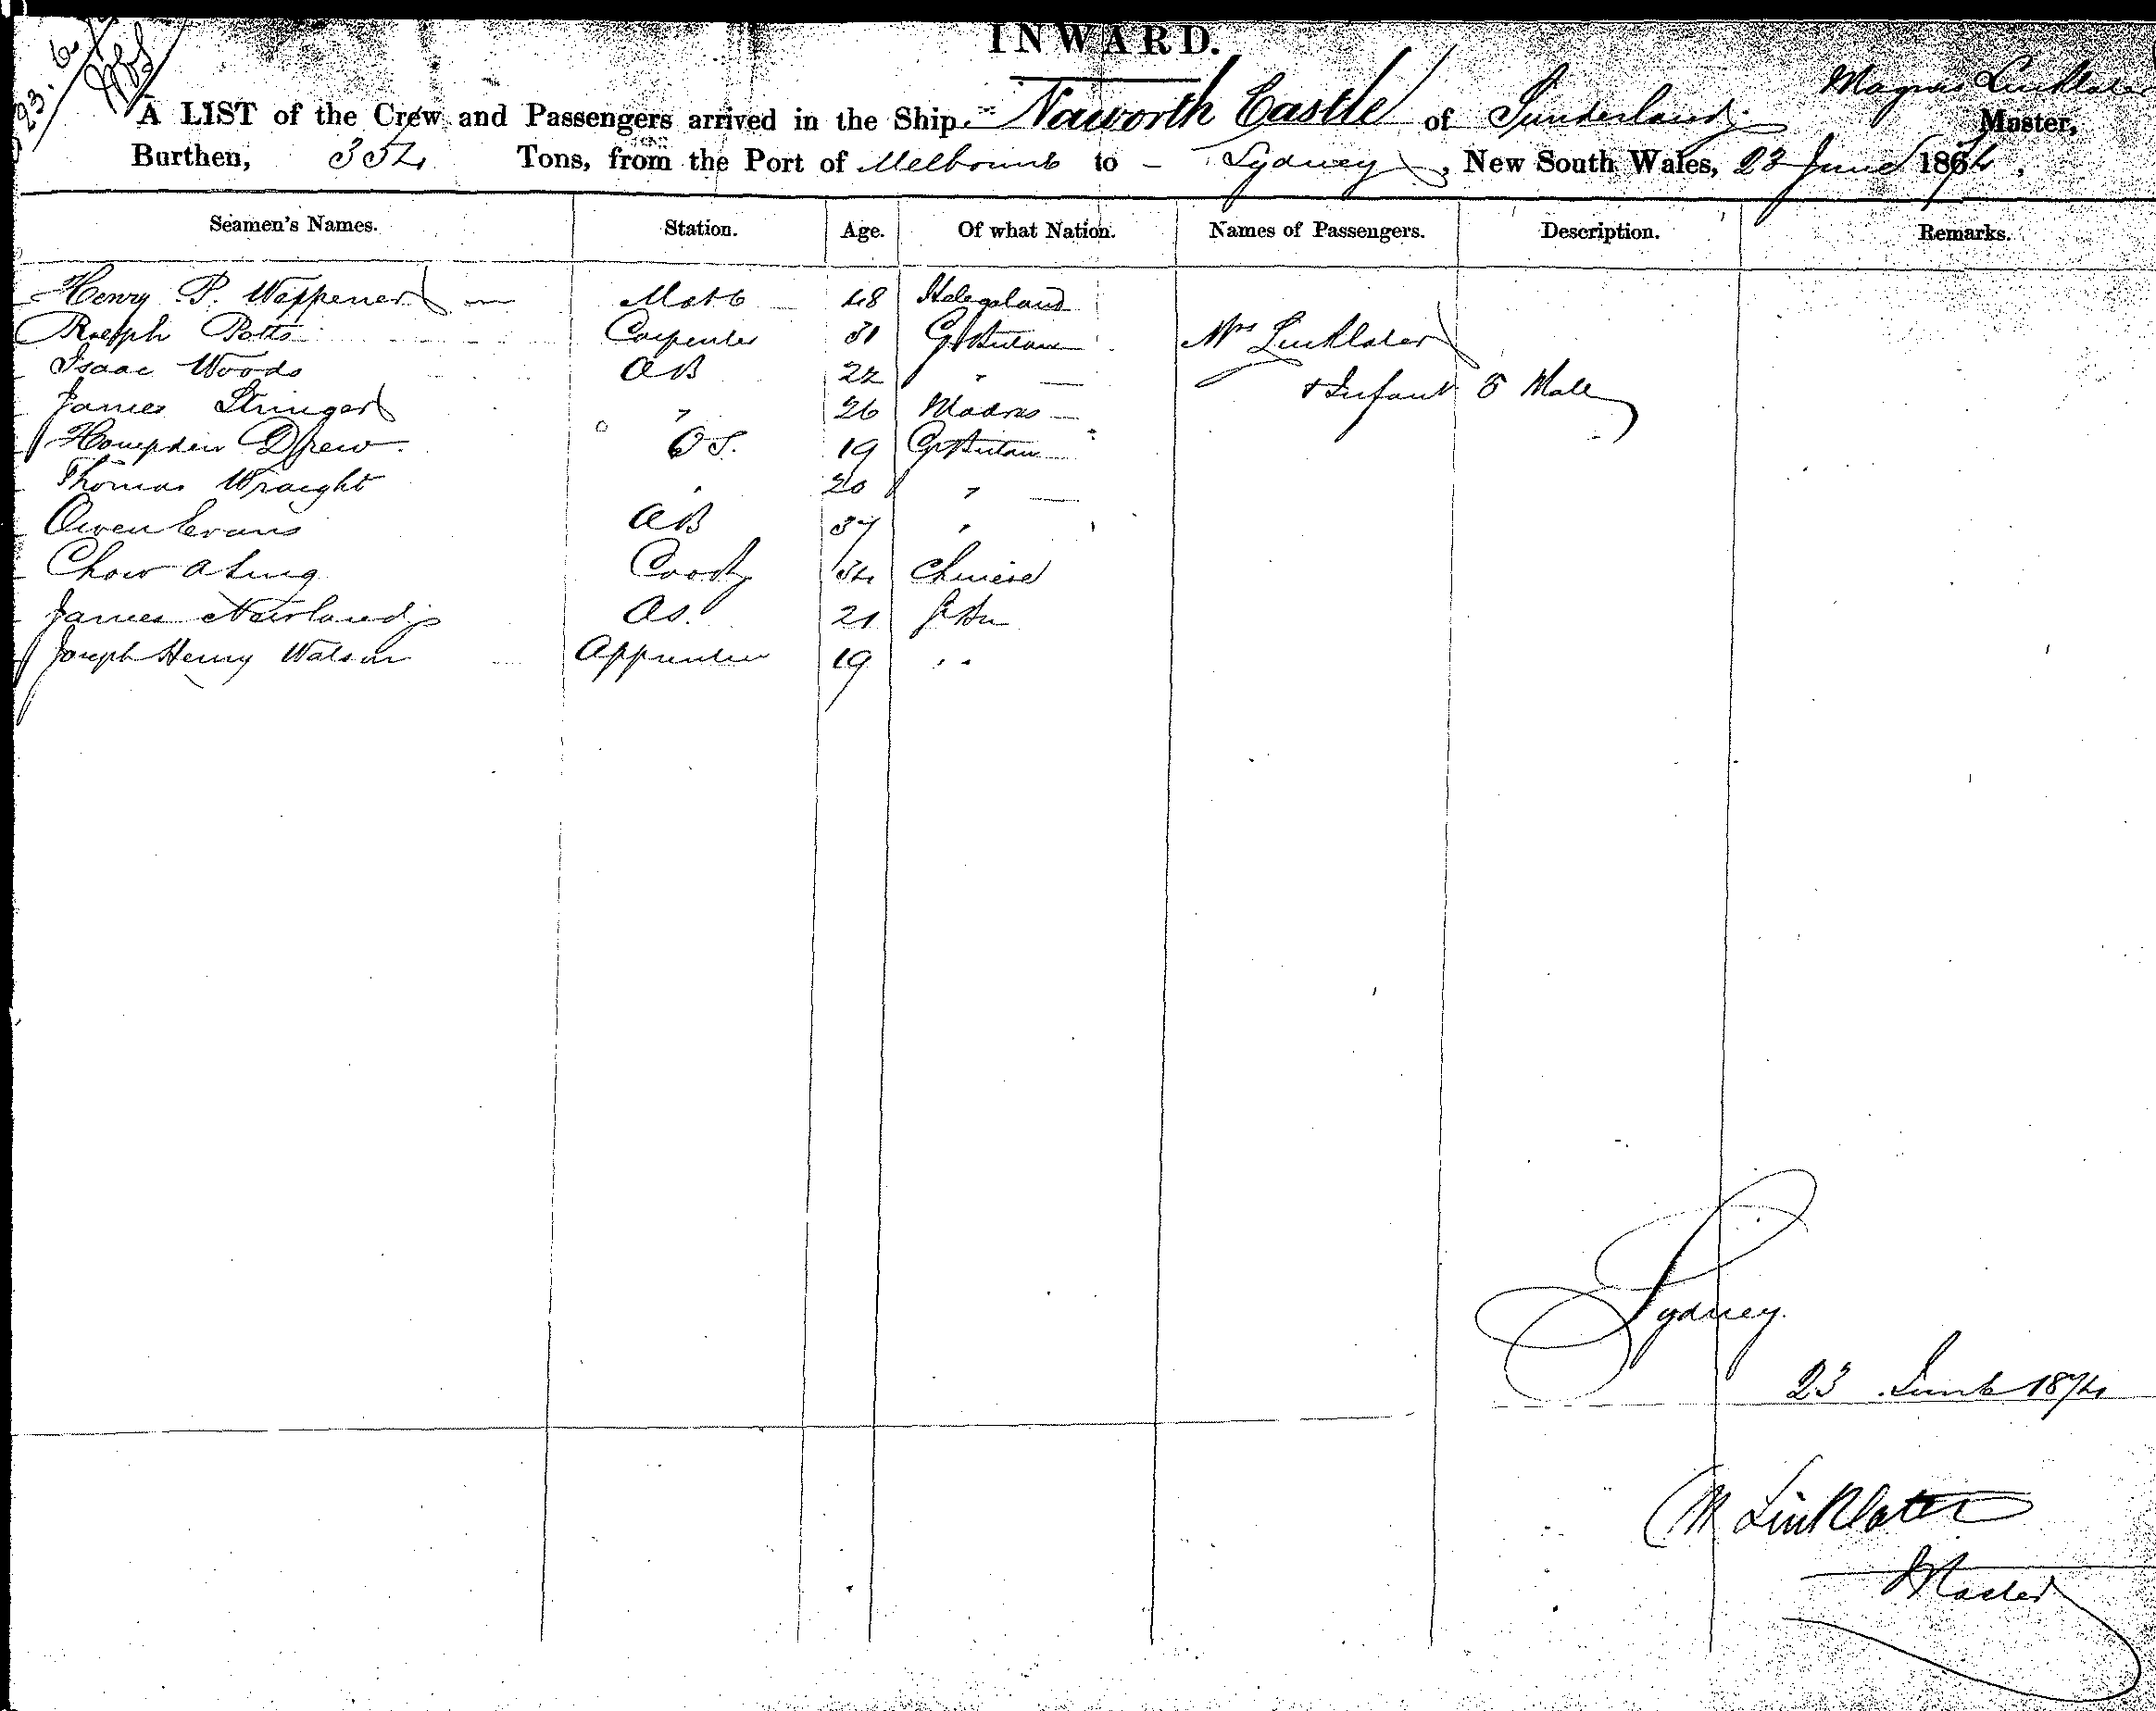 23. 6.
INWARD.
Magnus Linklater
A LIST of the Crew and Passengers arrived in the Ship Naworth Castle of Sunderland Master,
Burthen, 354 Tons, from the Port of Melbourne to Sydney, New South Wales, 23 June 1874.
Seamen's Names. Station. Age. Of what Nation. Names of Passengers. Description. Remarks.
Henry P. Wappener Mate 48 Helegoland
Ralph Potts Carpenter 31 Gt Britain Mrs Linklater
Isaac Woods AB 22 "
& Infant Male
James Stringer " 26 Madras
Hampden Drew OS. 19 Gt Britain
Thomas Wraight " 20 "
Owen Evans AB 37 "
Chow a Sing 34 Chinese
James Newlands OS. 21 Gt Bn
Joseph Henry Watson Apprentice 19 "
Sydney
23 June 1874
M Linklater
Master